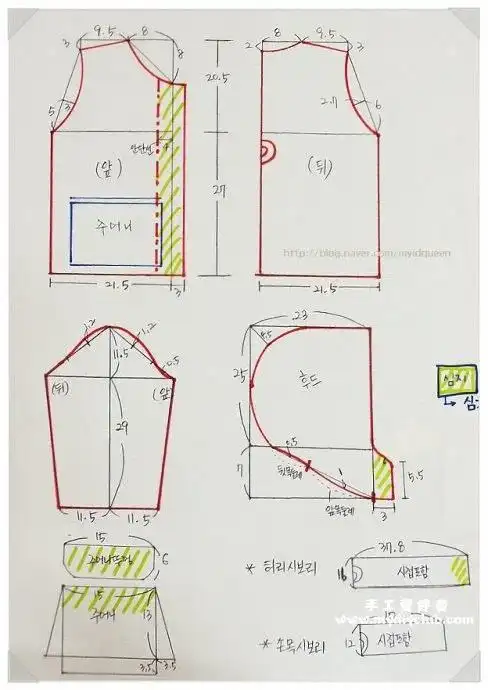 9.5 8
3
8
20.5
5 3
안단선
4
(앞)
주머니
27
21.5 3
8 9.5
2 3
2.7 6
(뒤)
http://blog.naver.com/myidqueen
21.5
1.2
11.5
0.5
(뒤) (앞)
29
11.5 11.5
23
4.5
25
후드
0.5
뒷목둘레
7
앞목둘레
5.5
3
심지
15
6
주머니뚜껑
15
주머니
13
3.5 3.5
* 허리시보리
37.8
16
시접포함
* 손목시보리
12
시접포함
www.mydiyclub.com